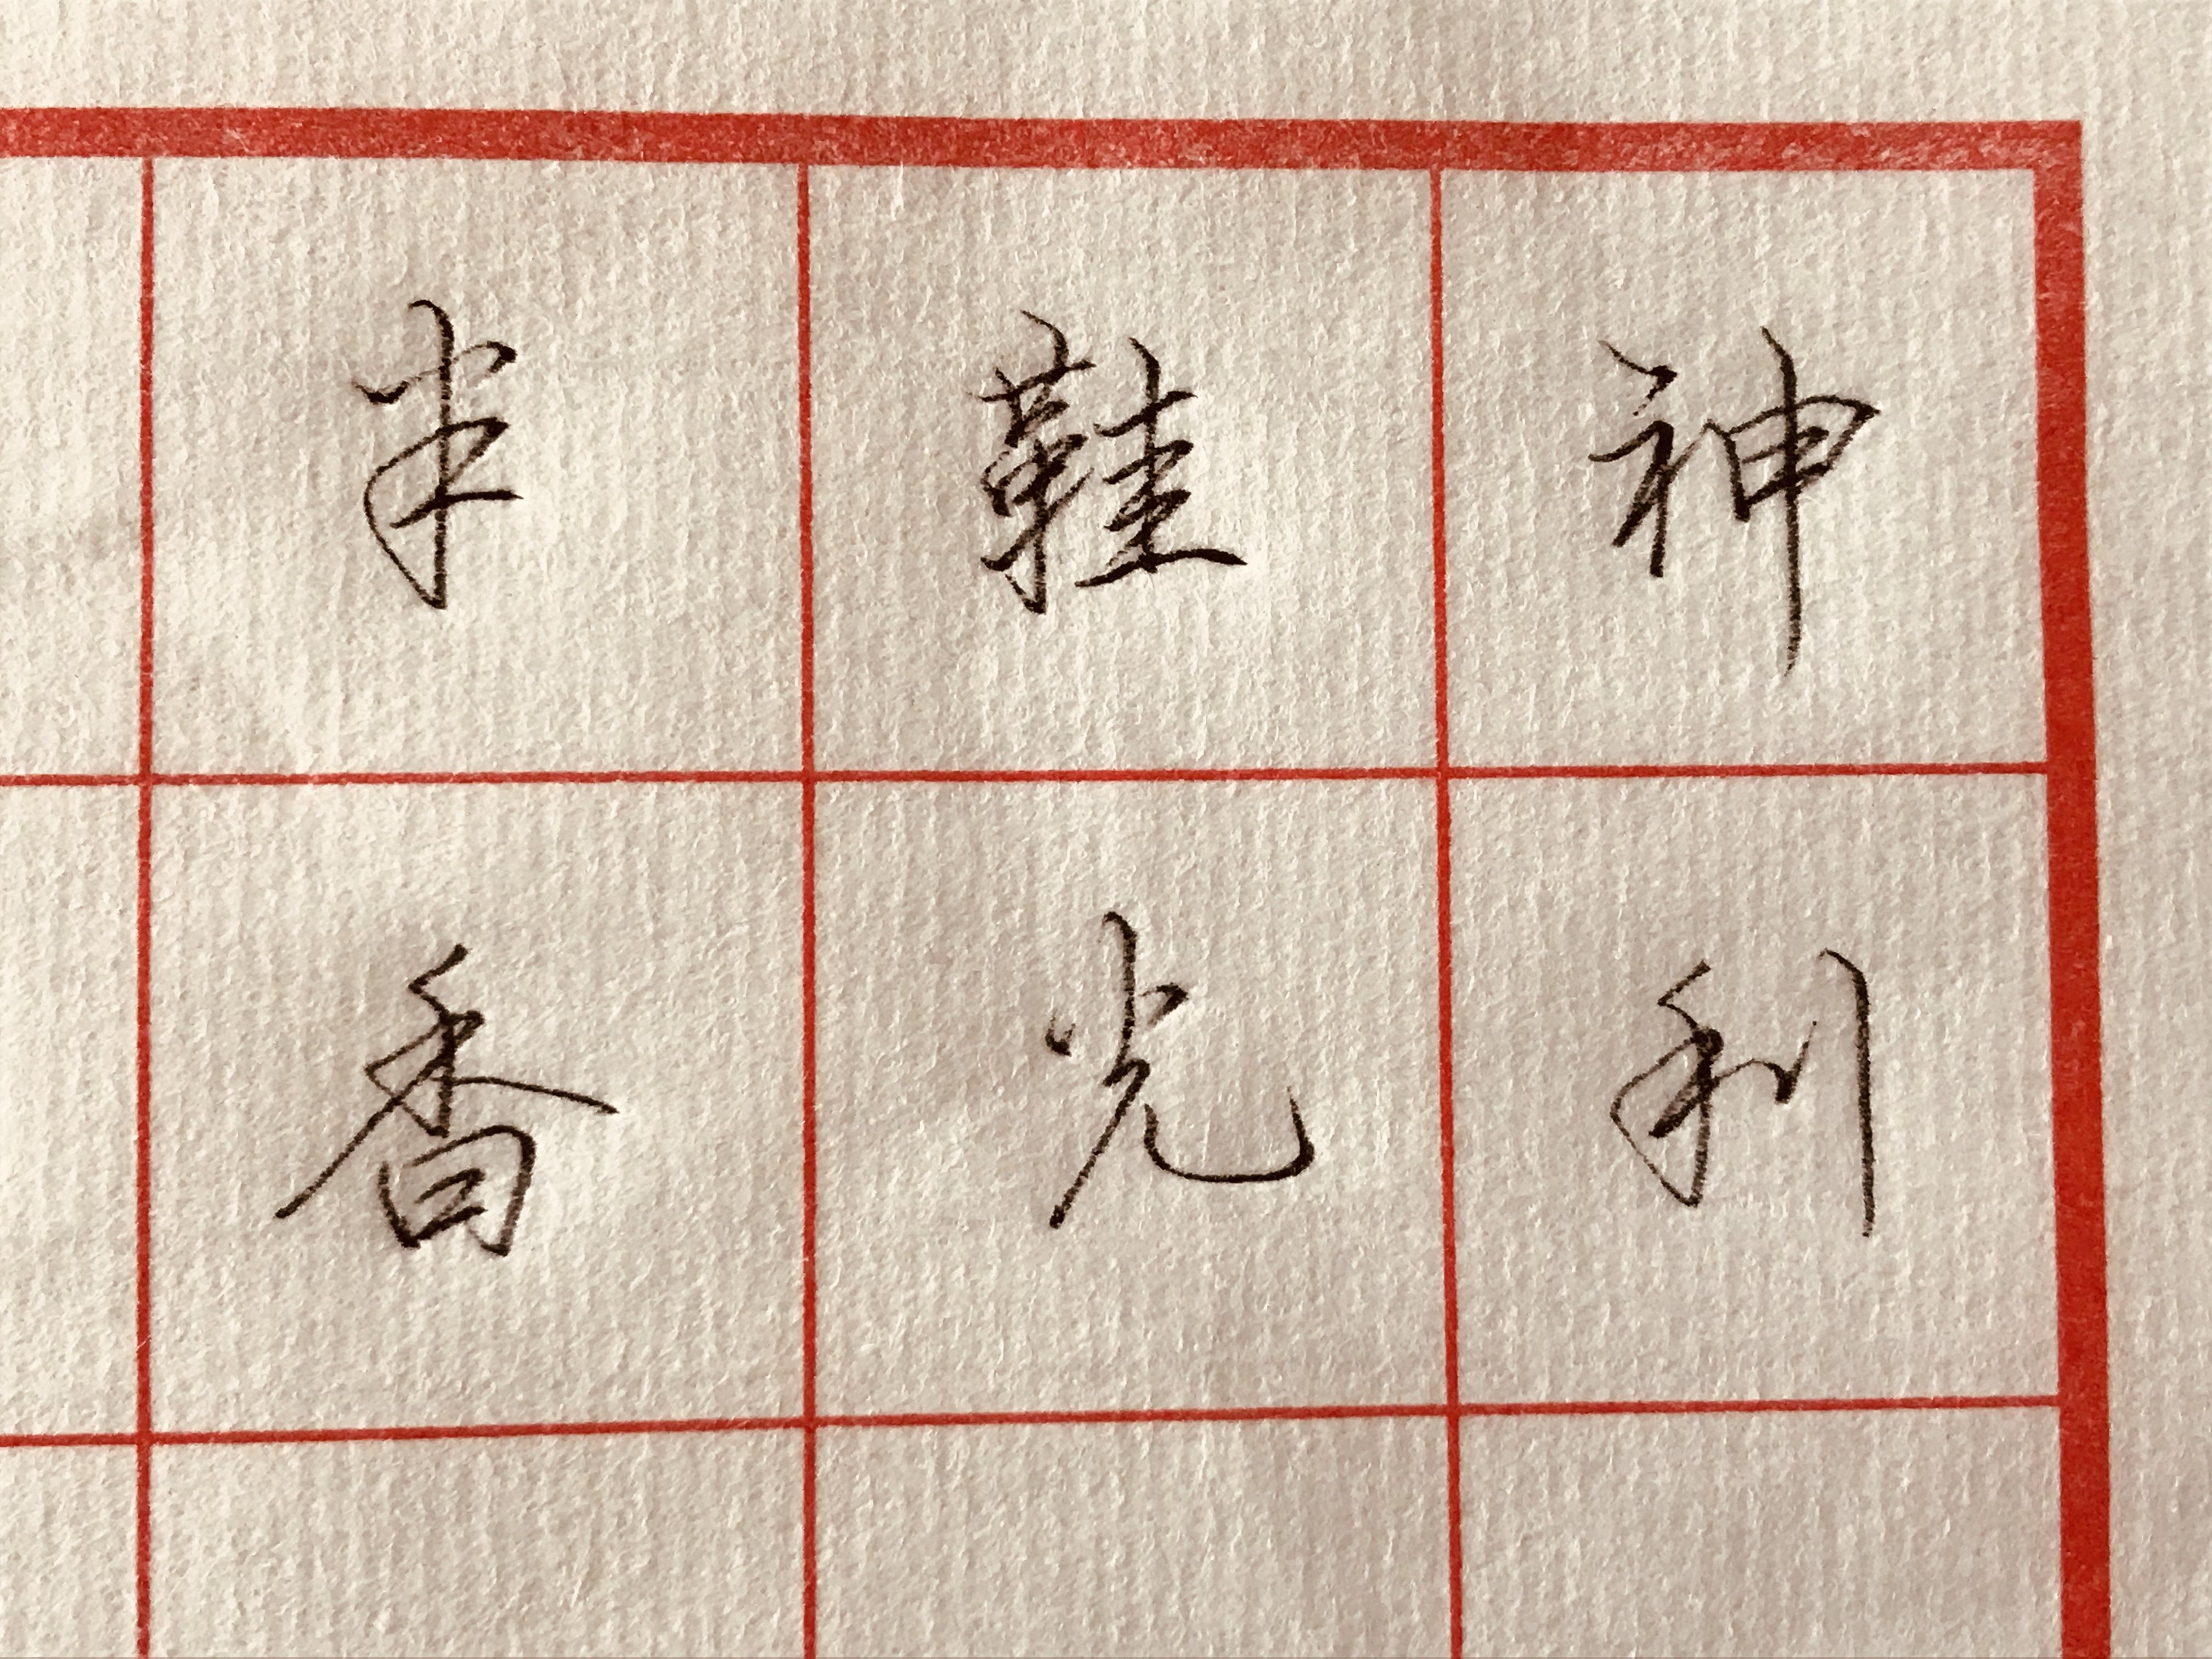 神利
鞋光
半香